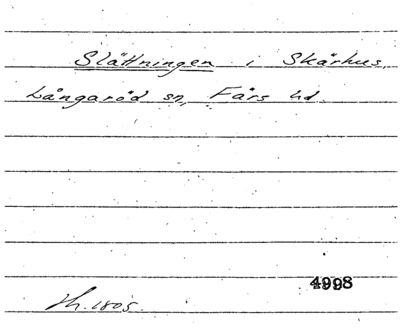 Slättningen i Skärhus,
Långaröd sn, Färs hd.
4998
Th. 1805.